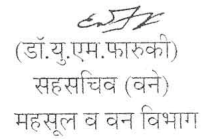 (डॉ.यु.एम.फारुकी)
सहसचिव (वने)
महसूल व वन विभाग